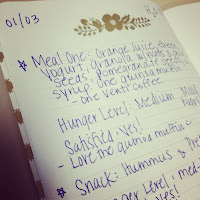 01/03
Meal One: Orange Juice, Greek
Yogurt, granola, minute
seeds, pomegranate
syrup. one quinoa muffin
- one venti coffee
Hunger Level: Medium Mood
Satisfied - Yes!
- Love the quinoa muffin -
Snack: Hummus & Pre
Hunger Level: med-
Yes!